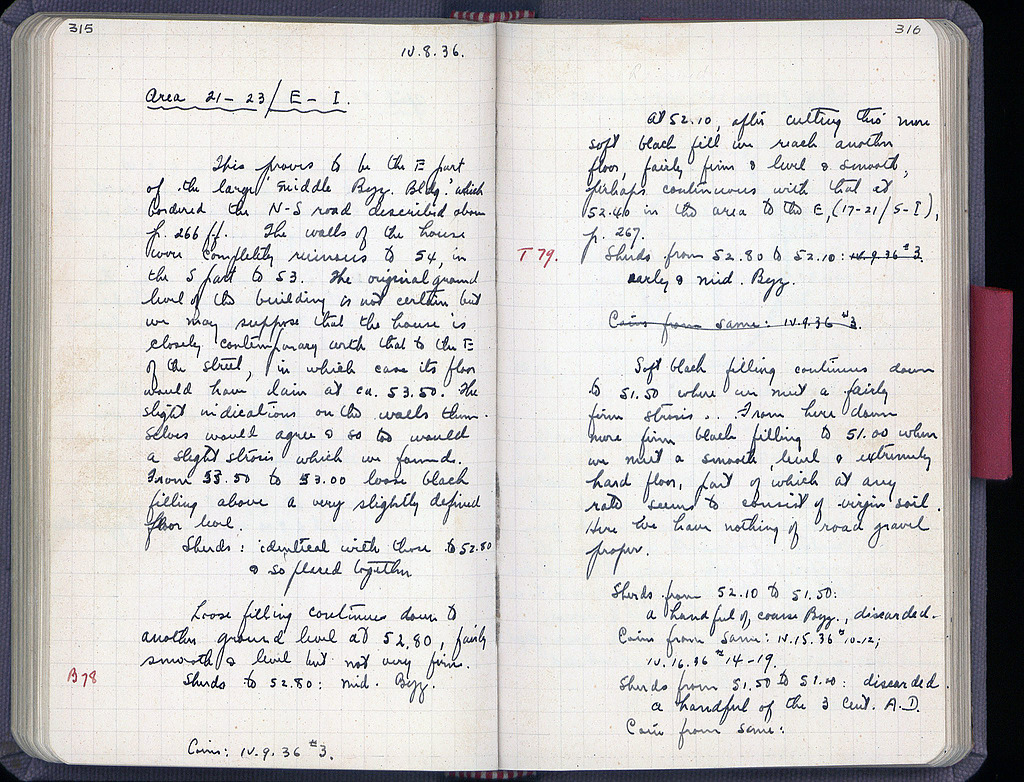 315
IV.8.36.
Area 21-23/E-I.
This proves to be the E part
of the large 'middle Byz. Bldg.' which
bordered the N-S road described above
p. 266 ff. The walls of the house
were completely ruinous to 54, in
the S part to 53. The original ground
level of the building is not certain but
we may suppose that the house is
closely contemporary with that to the E
of the street, in which case its floor
would have lain at ca. 53.50. The
slight indications on the walls them-
selves would agree & so too would
a slight strosis which we found.
From 53.50 to 53.00 loose black
filling above a very slightly defined
floor level.
Sherds: identical with those to 52.80
& so placed together
Loose filling continues down to
another ground level at 52.80, fairly
smooth & level but not very firm.
B78
Sherds to 52.80: mid. Byz.
Coins: IV.9.36 #3.
316
At 52.10, after cutting thro' more
soft black fill we reach another
floor, fairly firm & level & smooth,
perhaps continuous with that at
52.40 in the area to the E, (17-21/S-I),
p. 267.
T 79.
Sherds from 52.80 to 52.10: IV.9.36 #3.
early & mid. Byz.
Coins from same: IV.9.36 #3.
Soft black filling continues down
to 51.50 where we meet a fairly
firm strosis... From here down
more firm black filling to 51.00 when
we meet a smooth, level & extremely
hard floor, part of which at any
rate seems to consist of virgin soil.
Here we have nothing of road gravel
proper.
Sherds from 52.10 to 51.50:
a handful of coarse Byz., discarded.
Coins from same: IV.15.36 #10-12;
IV.16.36 #14-19.
Sherds from 51.50 to 51.20: discarded
a handful of the 3 cent. A.D.
Coins from same: